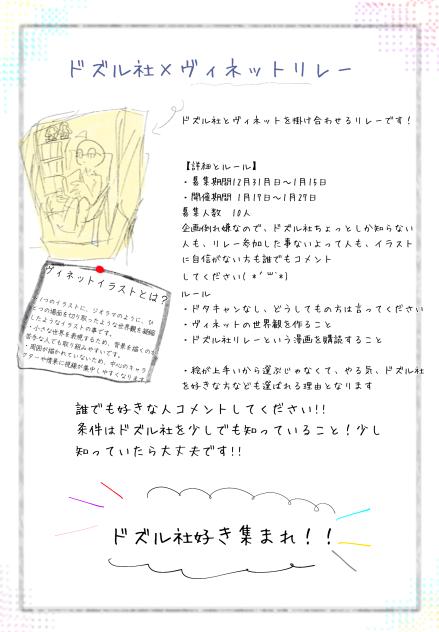 ドズル社×ヴィネットリレー
ドズル社とヴィネットを掛け合わせるリレーです!
【詳細とルール】
・募集期間12月31日~1月15日
・開催期間 1月17日~1月27日
募集人数 10人
企画倒れ嫌なので、ドズル社ちょっとしか知らない
人も、リレー参加した事ないよって人も、イラスト
に自信がない方も誰でもコメント
してください(*'꒳'*)
ルール
・ドタキャンなし、どうしてもの方は言ってください
・ヴィネットの世界観を作ること
・ドズル社リレーという漫画を購読すること
・絵が上手いから選ぶじゃなくて、やる気、ドズル社
を好きな方なども選ばれる理由となります
ヴィネットイラストとは?
・1つのイラストに、ジオラマのように、ひ
とつの場面を切り取ったような世界観を凝縮
したようなイラストの事です。
・小さな世界を表現するため、背景を描くのが
苦手な人でも取り組みやすいです。
・周囲が描かれていないため、中心のキャラ
クターや情景に視線が集中しやすくなります
誰でも好きな人コメントしてください!!
条件はドズル社を少しでも知っていること!少し
知っていたら大丈夫です!!
ドズル社好き集まれ!!